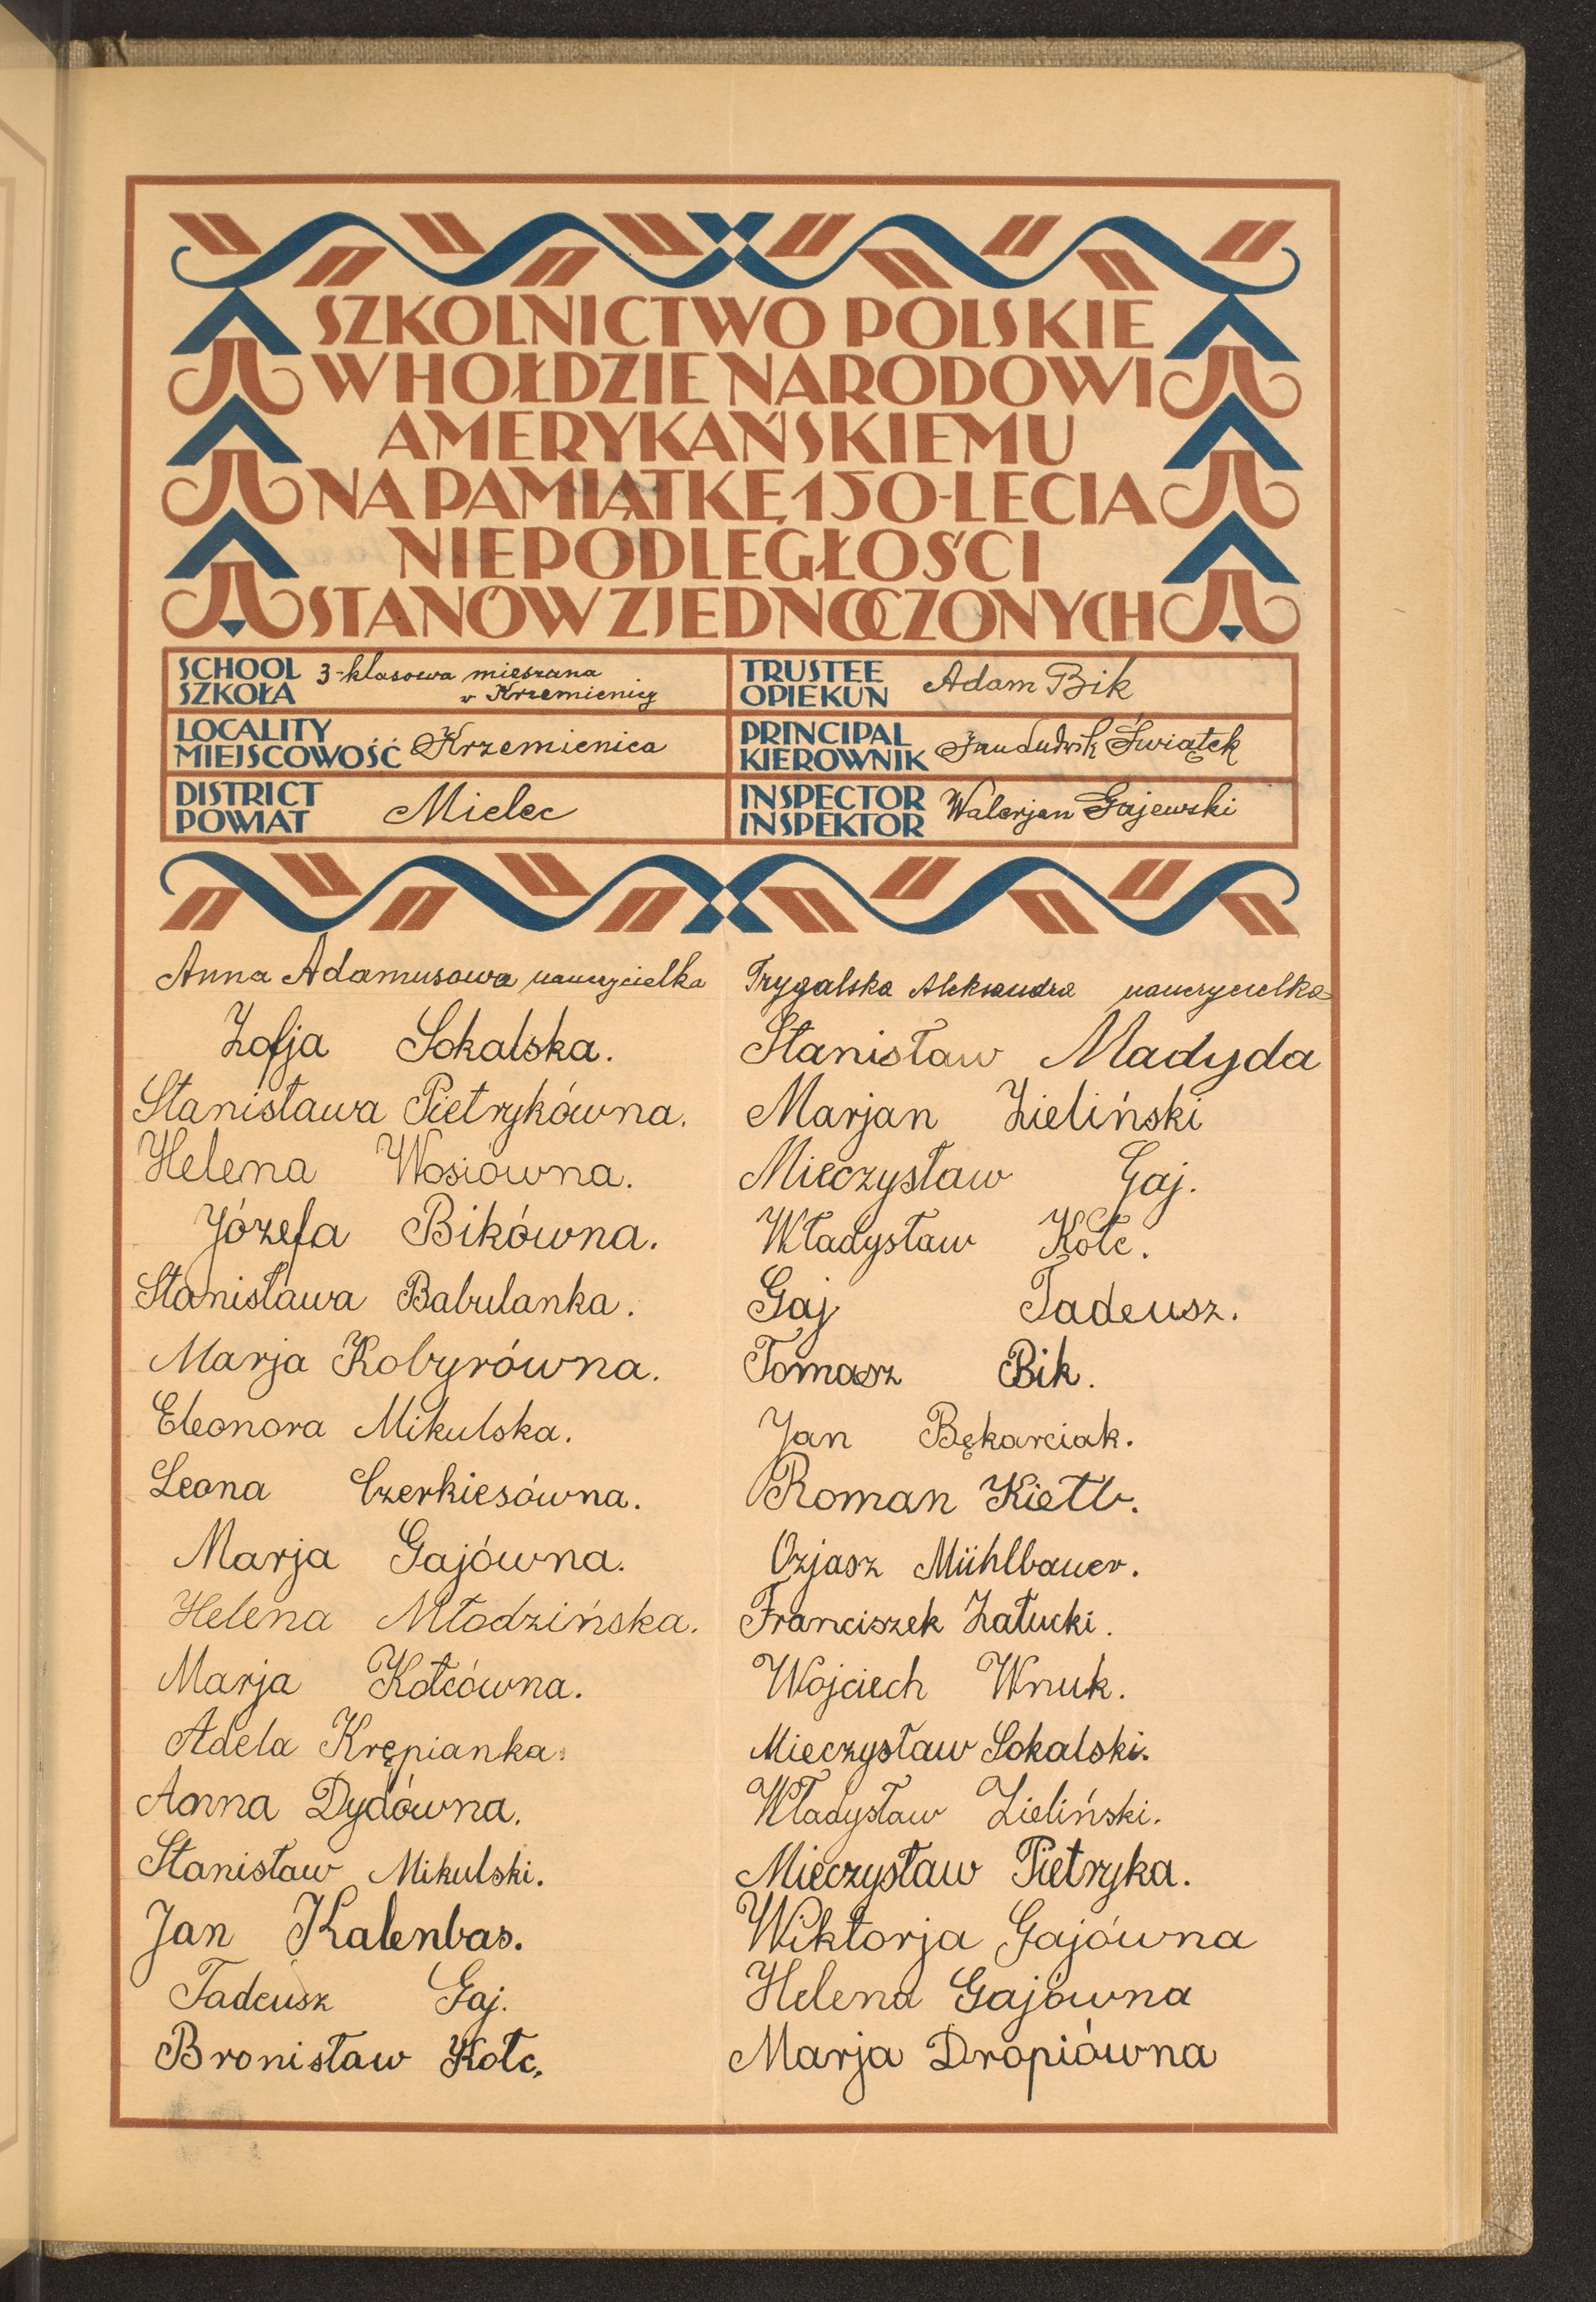 SZKOLNICTWO POLSKIE
W HOŁDZIE NARODOWI
AMERYKAŃSKIEMU
NA PAMIĄTKĘ 150-LECIA
NIEPODLEGŁOŚCI
STANÓW ZJEDNOCZONYCH
SCHOOL
SZKOŁA
3-klasowa mieszana
w Krzemienicy
TRUSTEE
OPIEKUN
Adam Bik
LOCALITY
MIEJSCOWOŚĆ
Krzemienica
PRINCIPAL
KIEROWNIK
Jan Ludwik Świątek
DISTRICT
POWIAT
Mielec
INSPECTOR
INSPEKTOR
Walerjan Gajewski
Anna Adamusowa nauczycielka
Zofja Sokalska.
Stanisława Pietrykówna.
Helena Wosiówna.
Józefa Bikówna.
Stanisława Babulanka.
Marja Kobyrówna.
Eleonora Mikulska.
Leona Czerkiesówna.
Marja Gajówna.
Helena Młodzińska.
Marja Kołcówna.
Adela Krępianka.
Anna Dydówna.
Stanisław Mikulski.
Jan Kalenbas.
Tadeusz Gaj.
Bronisław Kołc.
Trygalska Aleksandra nauczycielka
Stanisław Madyda
Marjan Zieliński
Mieczysław Gaj.
Władysław Kołc.
Gaj Tadeusz.
Tomasz Bik.
Jan Bękarciak.
Roman Kiełb.
Ozjasz Mühlbauer.
Franciszek Załucki.
Wojciech Wnuk.
Mieczysław Sokalski.
Władysław Zieliński.
Mieczysław Pietryka.
Wiktorja Gajówna
Helena Gajówna
Marja Dropiówna